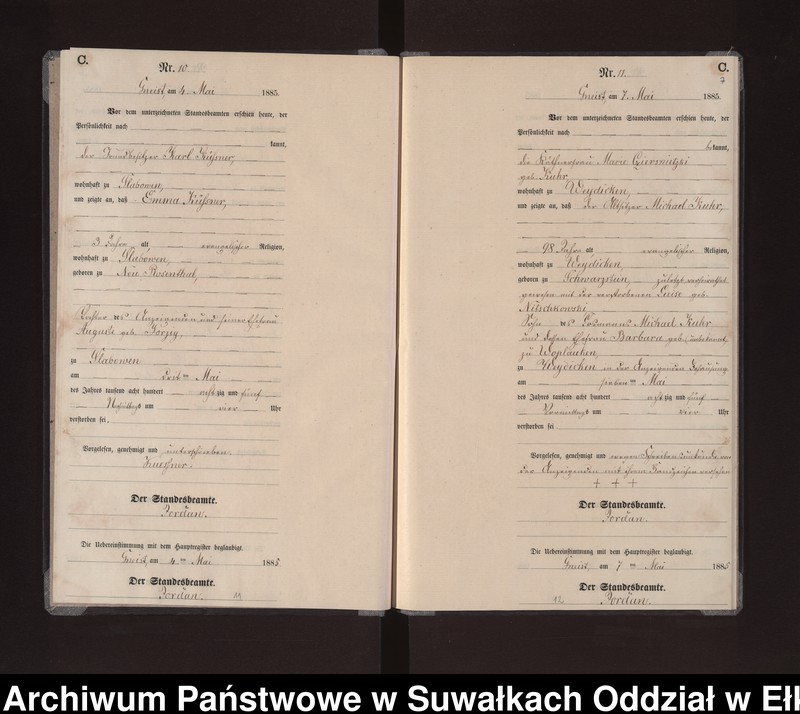 C.
Nr. 10
Gneist, am 4. Mai 1885.
Vor dem unterzeichneten Standesbeamten erschien heute, der
Persönlichkeit nach
kannt,
der Grundbesitzer Karl
wohnhaft zu Glabowen,
und zeigte an, daß Emma
3 Jahre alt evangelischer Religion,
wohnhaft zu Glabowen,
geboren zu Neu Rosenthal,
Tochter des Anzeigenden und seiner Ehefrau
Auguste geb.
zu Glabowen
am ten Mai
des Jahres tausend acht hundert achtzig und fünf
Nachmittags um vier Uhr
verstorben sei.
Vorgelesen, genehmigt und unterschrieben
Der Standesbeamte.
Jordan.
Die Uebereinstimmung mit dem Hauptregister beglaubigt
Gneist, am 4 ten Mai 1885
Der Standesbeamte.
Jordan. 11
C.
7
Nr. 11
Gneist, am 7. Mai 1885.
Vor dem unterzeichneten Standesbeamten erschien heute, der
Persönlichkeit nach
bekannt,
die Marie
geb. Kuhr,
wohnhaft zu Weydicken,
und zeigte an, daß der Altsitzer Michael Kuhr,
98 Jahre alt evangelischer Religion,
wohnhaft zu Weydicken,
geboren zu Schwarzstein, zuletzt verheirathet
gewesen mit der verstorbenen Luise geb.
Sohn des Michael Kuhr
und dessen Ehefrau Barbara geb. unbekannt,
zu Woplauken,
zu Weydicken in der Anzeigenden Behausung
am sieben ten Mai
des Jahres tausend acht hundert achtzig und fünf
Vormittags um vier Uhr
verstorben sei.
Vorgelesen, genehmigt und wegen Schreibensunkunde von
der Anzeigenden mit ihrem Handzeichen versehen
+ + +
Der Standesbeamte.
Jordan.
Die Uebereinstimmung mit dem Hauptregister beglaubigt.
Gneist, am 7 ten Mai 1885
Der Standesbeamte.
12 Jordan.
Archiwum Państwowe w Suwałkach Oddział w Ełk